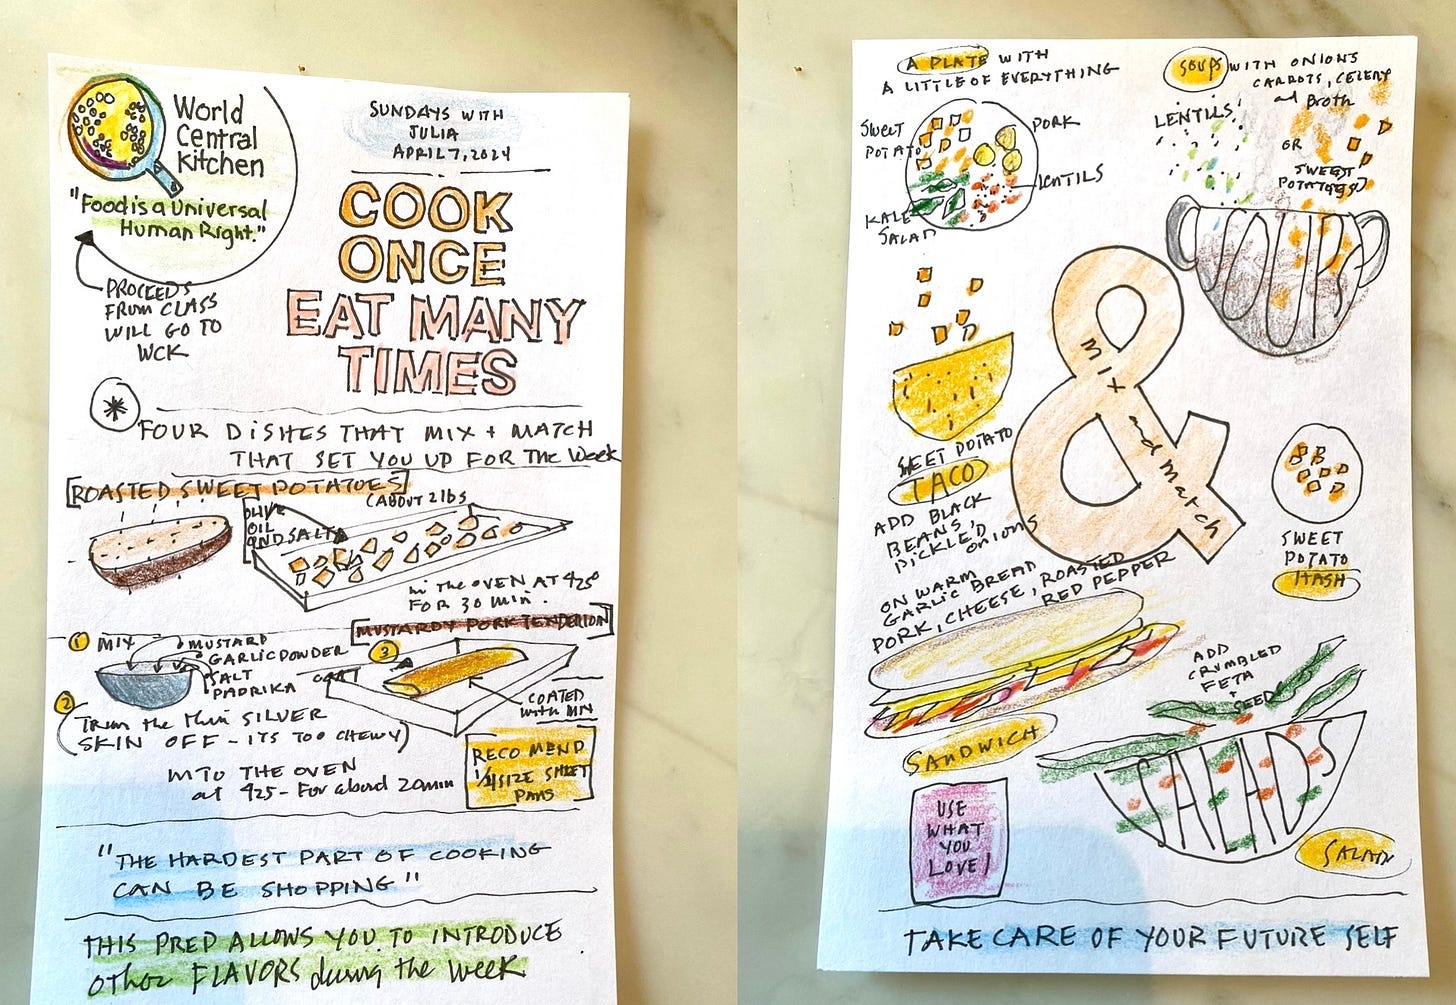 World
Central
Kitchen
"Food is a Universal
Human Right."
PROCEEDS
FROM CLASS
WILL GO TO
WCK
SUNDAYS WITH
JULIA
APRIL 7, 2024
COOK
ONCE
EAT MANY
TIMES
FOUR DISHES THAT MIX + MATCH
THAT SET YOU UP FOR THE Week
[ROASTED SWEET POTATOES]
(ABOUT 2 lbs
OLIVE
OIL
AND SALT
IN THE OVEN AT 425°
FOR 30 MIN.
[MUSTARDY PORK TENDERLOIN]
1 MIX
MUSTARD
GARLIC POWDER
SALT
PAPRIKA
2
Trim the thin SILVER
SKIN OFF - ITS TOO CHEWY)
3
COATED
with MIX
INTO THE OVEN
at 425 - For about 20 min
RECOMEND
SIZE SHEET
PANS
"THE HARDEST PART OF COOKING
CAN BE SHOPPING"
THIS PREP ALLOWS YOU TO INTRODUCE
other FLAVORS during the week
A PLATE WITH
A LITTLE OF EVERYTHING
SWEET
POTATO
PORK
LENTILS
KALE
SALAD
SOUPS WITH ONIONS
CARROTS, CELERY
and Broth
LENTILS
OR
SWEET
POTATOES
SOUPS
SWEET POTATO
TACO
ADD BLACK
BEANS,
PICKLE'D
ONIONS
& mix and match
SWEET
POTATO
HASH
ON WARM
GARLIC BREAD
PORK, CHEESE, ROASTED
RED PEPPER
SANDWICH
ADD
CRUMBLED
FETA
+
SEEDS
SALADS
SALAD
USE
WHAT
YOU
LOVE!
TAKE CARE OF YOUR FUTURE SELF